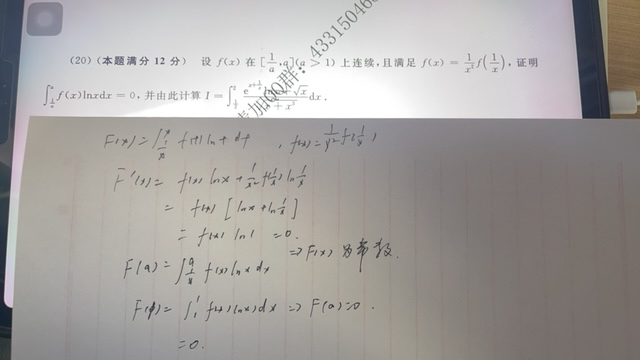 (20)(本题满分 12 分) 设 f(x) 在 [1/a, a](a > 1) 上连续,且满足 f(x) = 1/x² f(1/x), 证明
∫_{1/a}^{a} f(x)lnxdx = 0, 并由此计算 I = ∫_{1/2}^{2} dx.
加QQ群: 43315046
F(x) = ∫_{1/x}^{x} f(t) ln t dt , f(x) = 1/x² f(1/x)
F'(x) = f(x) lnx + 1/x² f(1/x) ln 1/x
= f(x) [lnx + ln 1/x]
= f(x) ln1 = 0.
⇒ F(x) 为常数.
F(a) = ∫_{1/a}^{a} f(x) ln x dx
F(1) = ∫_1^1 f(x) lnx dx ⇒ F(a) = 0.
= 0.